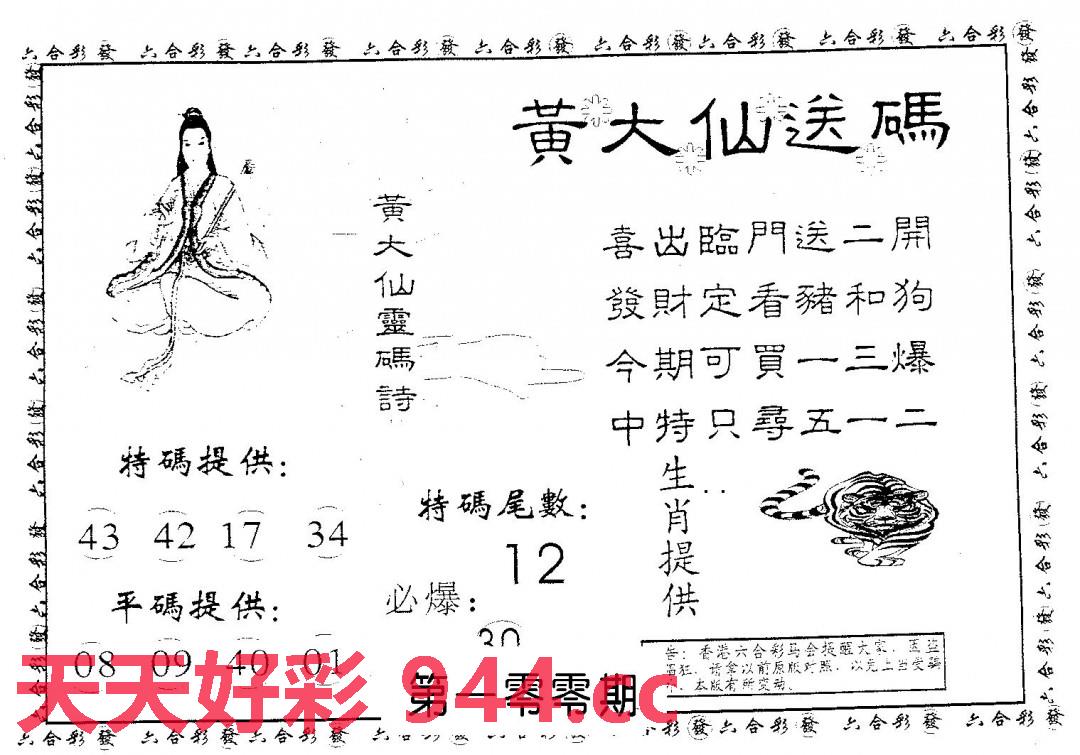 六合彩發 六合彩發六合彩發 六合彩發 六合彩發 六合彩發六合彩發 六合彩發 六合彩發
黃大仙送碼
黃大仙靈碼詩
喜出臨門送二開
發財定看豬和狗
今期可買一三爆
中特只尋五一二
特碼提供:
43 42 17 34
特碼尾數:
12
生肖提供
平碼提供:
08 09 40 01
必爆:
30
告:香港六合彩马会提醒大家,因盗
猖狂,请拿以前原版对照,以免上当受骗
本版有所变动、
天天好彩 944.cc
第一零零期
六合彩發 六合彩發六合彩發 六合彩發 六合彩發 六合彩發 六合彩發